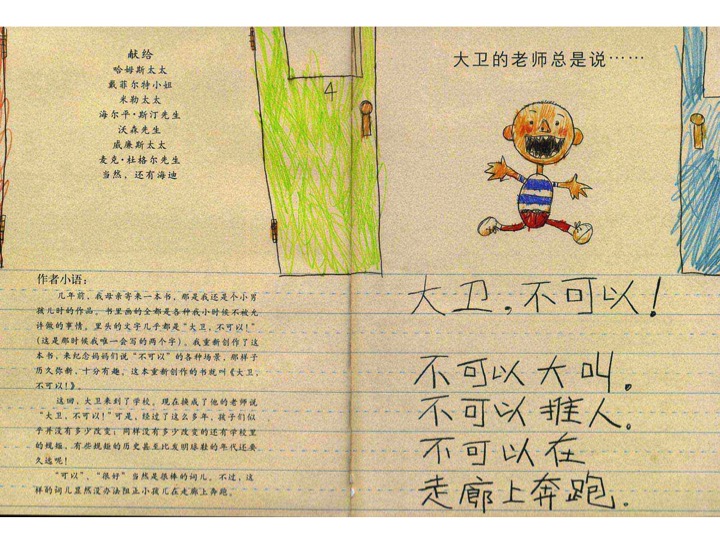 献给
哈姆斯太太
戴菲尔特小姐
米勒太太
海尔平·斯汀先生
沃森先生
威廉斯太太
麦克·杜格尔先生
当然，还有海迪
4
作者小语：
几年前，我母亲寄来一本书，那是我还是个小男
孩儿时的作品，书里画的全都是各种我小时候不被允
许做的事情，里头的文字几乎都是“大卫，不可以！”
（这是那时候我唯一会写的两个字）。我重新创作了这
本书，来纪念妈妈们说“不可以”的各种场景，那样子
历久弥新，十分有趣。这本重新创作的书就叫《大卫，
不可以！》。
这回，大卫来到了学校，现在换成了他的老师说
“大卫，不可以！”可是，经过了这么多年，孩子们似
乎并没有多少改变；同样没有多少改变的还有学校里
的规矩，有些规矩的历史甚至比发明球鞋的年代还要
久远呢！
“可以”、“很好”当然是很棒的词儿。不过，这
样的词儿显然没办法阻止小孩儿在走廊上奔跑。
大卫的老师总是说……
大卫，不可以！
不可以大叫。
不可以推人。
不可以在
走廊上奔跑。